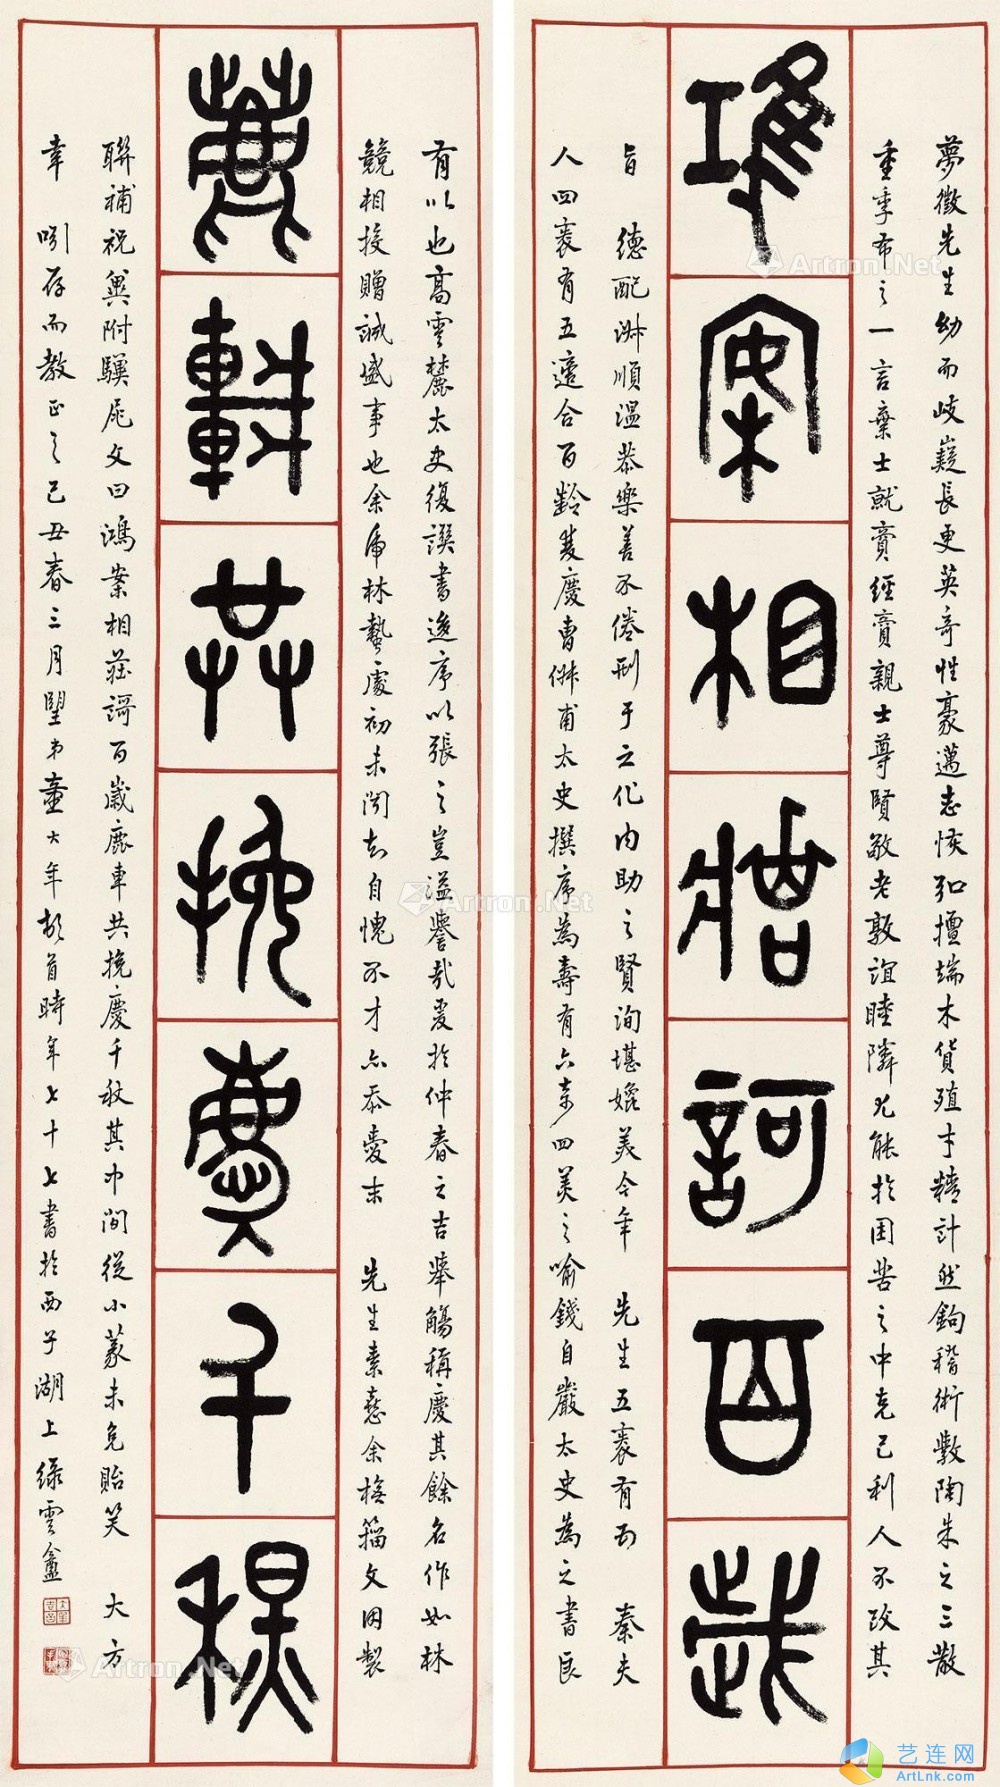 夢徵先生幼而岐嶷長更英奇性豪邁志恢弘擅端木貨殖才精計然鉤稽術數陶朱之三散
重季布之一言棄士就賈經賈親士尊賢敬老敦誼睦隣尤能於困苦之中克己利人不改其
鴻案相莊謌百歲
旨　德配淑順溫恭樂善不倦刑于之化內助之賢洵堪媲美今年　先生五袠有五　秦夫
人四袠有五適合百齡雙慶曹甫太史撰序為壽有六四美之喻錢自嚴太史為之書良
有以也高雲麓太史復譔書序以張之豈溢譽哉爰於仲春之吉舉觴稱慶其餘名作如林
競相投贈誠盛事也余林蟄處初未聞知自愧不才亦忝愛末　先生素憙余橅籀文因製
鹿車共挽慶千秋
聯補祝冀附驥尾文曰鴻案相莊謌百歲鹿車共挽慶千秋其中間從小篆未免貽笑　大方
幸　哂存而教正之己丑春三月朢弟童大年頓首時年七十七書於西子湖上綠雲盦
Artron.Net
艺连网
ArtLnk.com